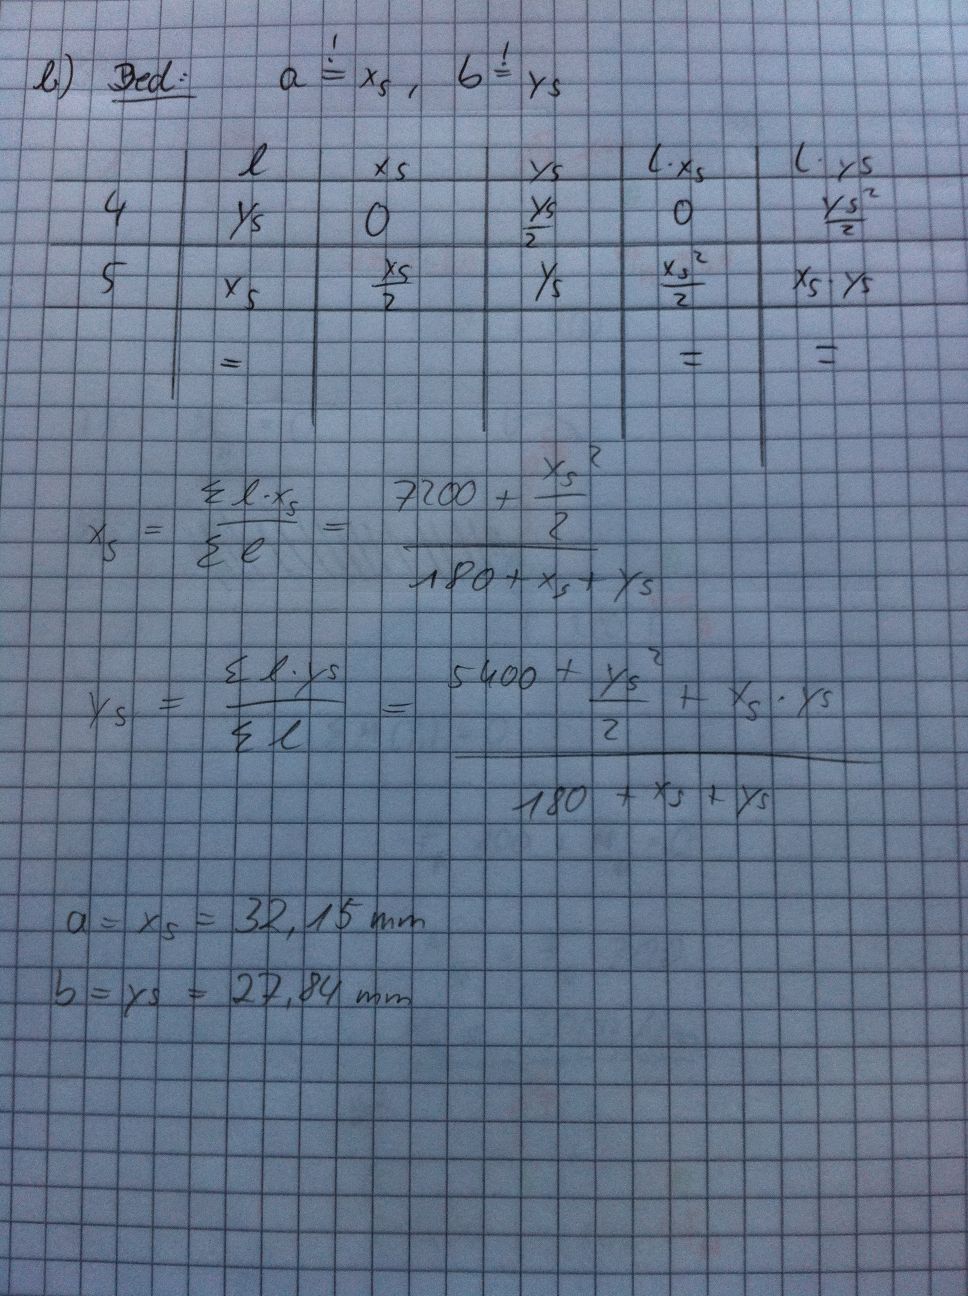 b) Bed: a =! xs, b =! ys
l xs ys l·xs l·ys
4 ys 0 ys/2 0 ys²/2
5 xs xs/2 ys xs²/2 xs·ys
= = =
xs = Σl·xs / Σl = (7200 + xs²/2) / (180 + xs + ys)
ys = Σl·ys / Σl = (5400 + ys²/2 + xs·ys) / (180 + xs + ys)
a = xs = 32,15 mm
b = ys = 27,84 mm